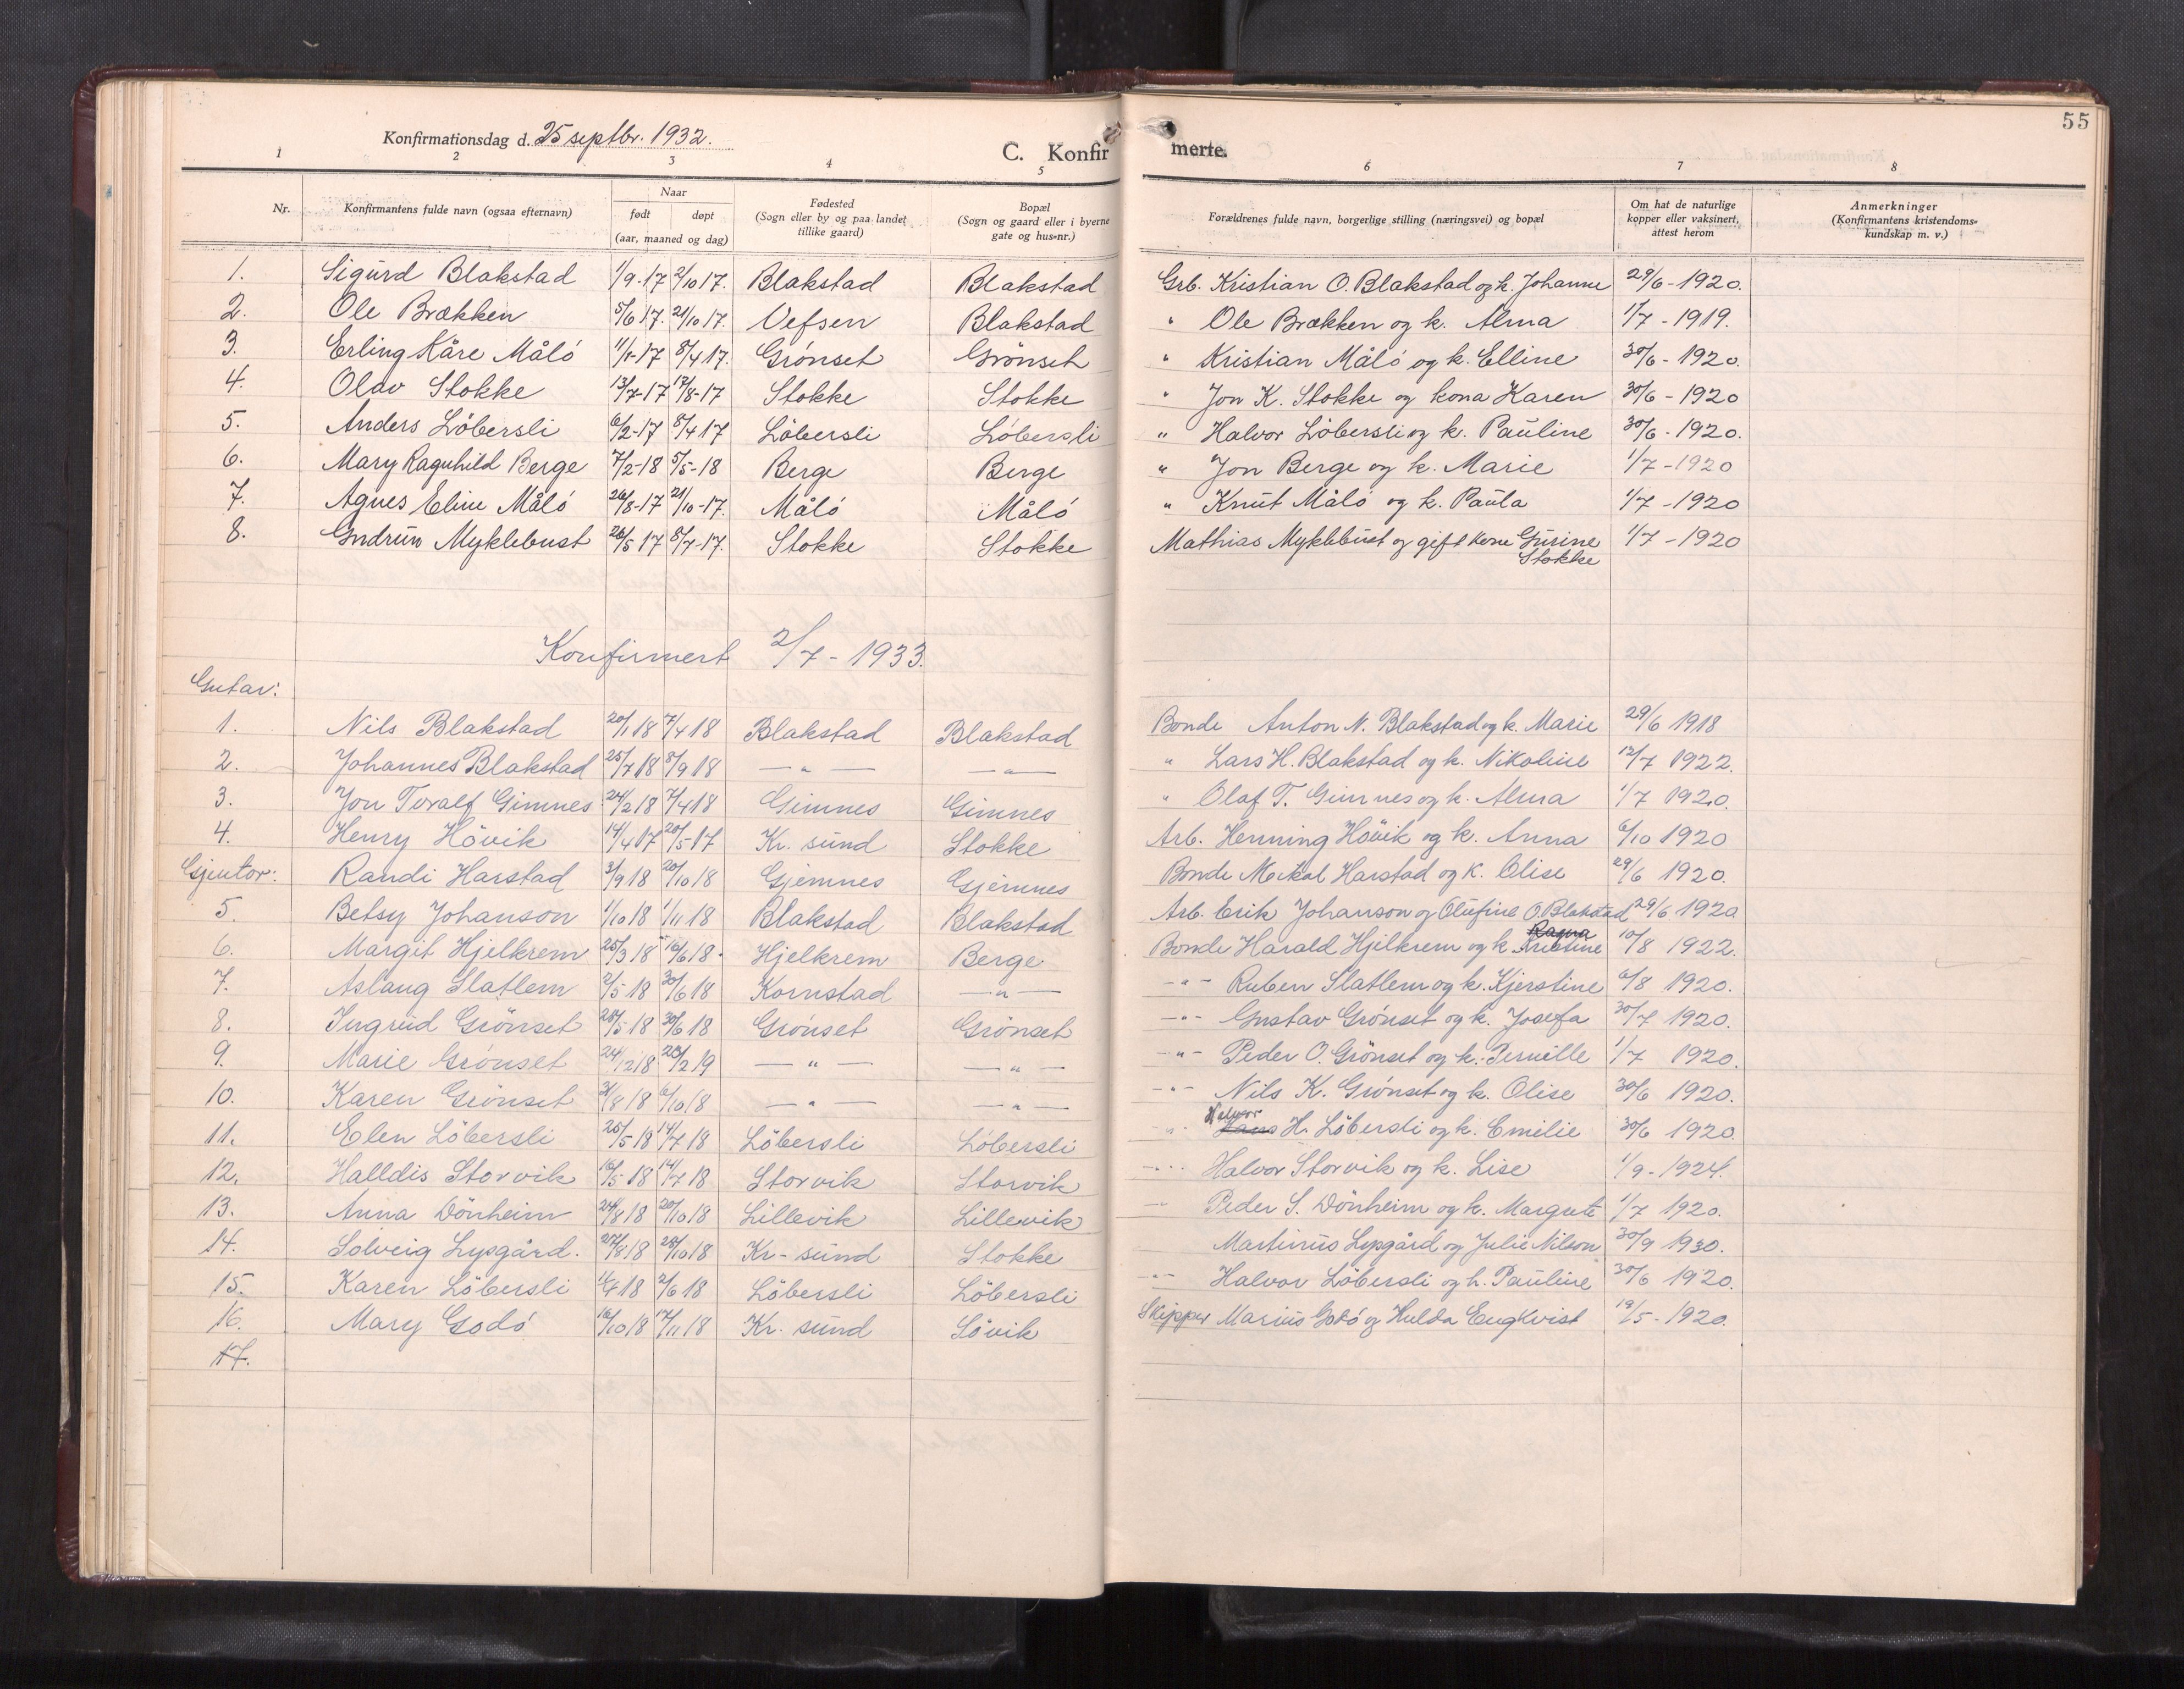 55
Konfirmationsdag d. 25 septbr. 1932.
C. Konfirmerte.
1 2 3 4 5 6 7 8
Nr. Konfirmantens fulde navn (ogsaa efternavn) Naar født døpt (aar, maaned og dag) Fødested (Sogn eller by og paa landet tillike gaard) Bopæl (Sogn og gaard eller i byerne gate og hus-nr.) Forældrenes fulde navn, borgerlige stilling (næringsvei) og bopæl Om hat de naturlige kopper eller vaksinert, attest herom Anmerkninger (Konfirmantens kristendoms-kundskap m. v.)
1. Sigurd Blakstad 1/9-17 2/10 17. Blakstad Blakstad Grb. Kristian O. Blakstad og k. Johanne 29/6-1920.
2. Ole Brækken 5/6 17. 21/10 17. Vefsen Blakstad " Ole Brækken og k. Alma 1/7-1919.
3. Erling Kåre Måló 11/1-17 8/4 17. Grónset Grönset " Kristian Måló og k. Elline 30/6-1920.
4. Olav Stokke 13/7-17 17/8-17 Stokke Stokke " Jon K. Stokke og kona Karen 30/6-1920
5. Anders Löbersli 6/2-17 8/4 17 Löbersli Löbersli " Halvor Löbersli og k. Pauline 30/6-1920.
6. Mary Ragnhild Berge 7/2-18 5/5-18 Berge Berge " Jon Berge og k. Marie 1/7-1920
7. Agnes Eline Måló 26/8-17 21/10-17. Måló Måló " Knut Måló og k. Paula 1/7-1920
8. Gudrun Myklebust 26/5 17 8/7-17. Stokke Stokke Mathias Myklebust og gift kone Gurine Stokke 1/7-1920
Konfirmert 2/7-1933.
Gutar:
1. Nils Blakstad 20/1 18 7/4 18 Blakstad Blakstad Bonde Anton N. Blakstad og k. Marie 29/6 1918
2. Johannes Blakstad 25/7 18 8/9 18 — " — — " — " Lars H. Blakstad og k. Nikoline 12/7 1922.
3. Jon Toralf Gimnes 24/2 18 7/4 18 Gimnes Gimnes " Olaf T. Gimnes og k. Alma 1/7 1920.
4. Henry Hövik 14/4 17 20/5-17 Kr. sund Stokke Arb. Henning Hövik og k. Anna 6/10 1920
Gjentor: Randi Harstad 3/9 18 20/10 18 Gjemnes Gjemnes Bonde Mikal Harstad og k. Olise 29/6 1920.
5. Betsy Johanson 1/10 18 1/11 18 Blakstad Blakstad Arb. Erik Johanson og Olufine O. Blakstad 29/6 1920
6. Margit Hjelkrem 25/3 18 16/6 18. Hjelkrem Berge Bonde Harald Hjelkrem og k. Kristine Ragna 10/8 1922.
7. Aslaug Slatlem 2/5 18 30/6 18 Kornstad — " — - " - Ruben Slatlem og k. Kjerstine 6/8 1920.
8. Ingrid Grönset 28/5 18 30/6 18 Grónset Grönset - " - Gustav Grónset og k. Josefa 30/7 1920.
9. Marie Grónset 24/12 18 20/2 19 — " — — " — - " - Peder O. Grönset og k. Pernille 1/7 1920.
10. Karen Grönset 3/8 18 6/10 18 — " — — " — - " - Nils K. Grónset og k. Olise 30/6 1920.
11. Elen Löbersli 25/5-18 14/7 18 Löbersli Löbersli " Hans Halvor H. Löbersli og k. Emilie 30/6 1920.
12. Halldis Storvik 16/5 18 14/7 18 Storvik Storvik - " - Halvor Storvik og k. Lise 1/9-1924.
13. Anna Dönheim 24/8 18 20/10 18 Lillevik Lillevik - " - Peder S. Dönheim og k. Margrete 1/7 1920.
14. Solveig Lysgård. 27/8 18 28/10 18 Kr-sund Stokke Martinus Lysgård og Julie Nilson 30/9 1930.
15. Karen Löbersli 1/4 18 2/6 18 Löbersli Löbersli - " - Halvor Löbersli og k. Pauline 30/6 1920.
16. Mary Godó 16/10 18 17/11 18 Kr. sund Lövik Skipper Marius Godó og Hulda Engkvist 19/5-1920.
17.